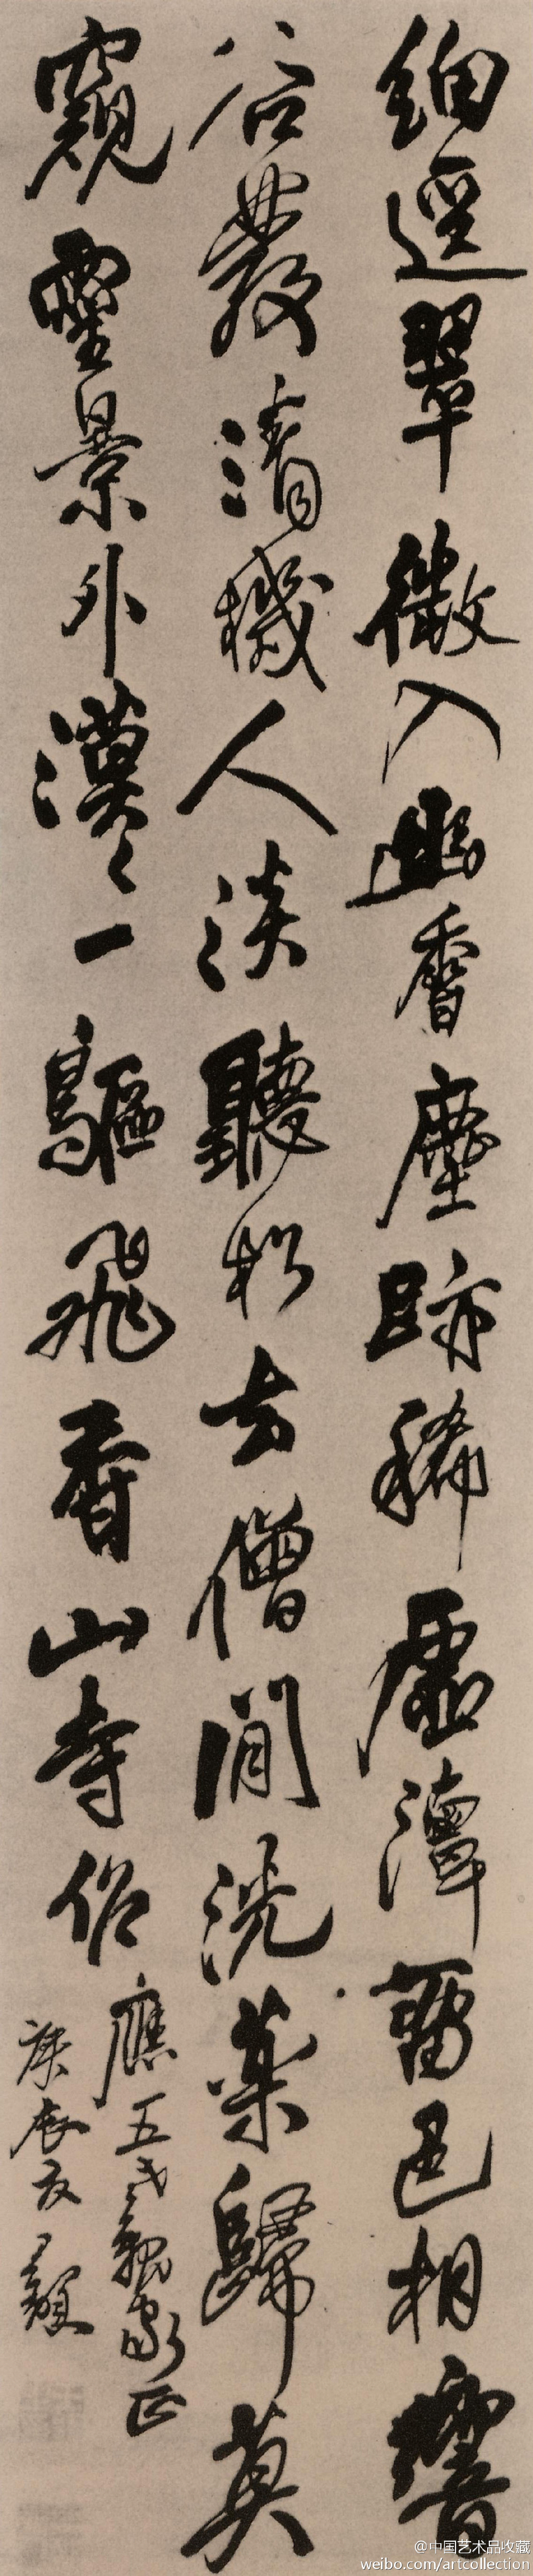 細逕翠微入幽香塵跡稀虛潭留色相響
谷發清機人淡聽松去僧閒洗藥歸莫
窺靈景外漠〻一驅飛香山寺俗
應五弌親家正
庚辰友
@中国艺术品收藏
weibo.com/artcollection